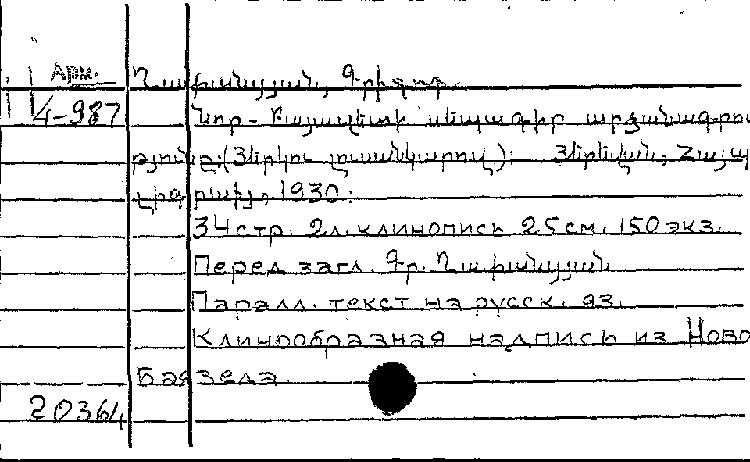 Арм. Ղափանցյան, Գրիգոր.
4-987 Նոր-Բայազետի սեպագիր արձանագրու
թյունը: (Յերկու լուսանկարով): Յերեվան, Հայպ
1930:
34 стр. 2л. клинопись 25см. 150 экз.
Перед загл. Գր. Ղափանցյան
Паралл. текст на русск. яз.
Клинообразная надпись из Ново
Баязеда
20364